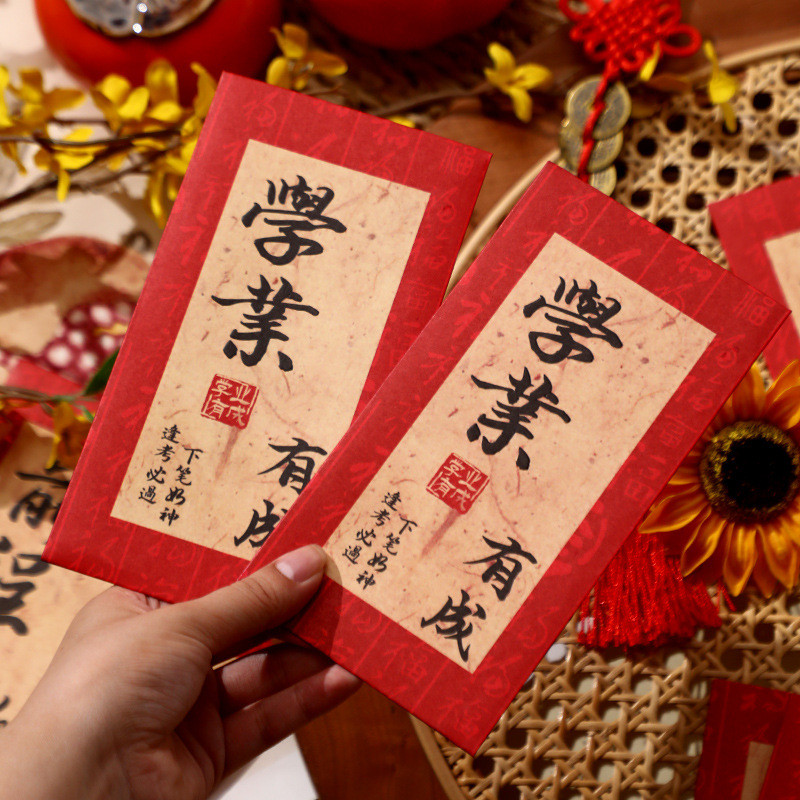 學業
有成
学业
有成
下笔如神
逢考必過
學業
有成
学业
有成
下笔如神
逢考必過
前程
福